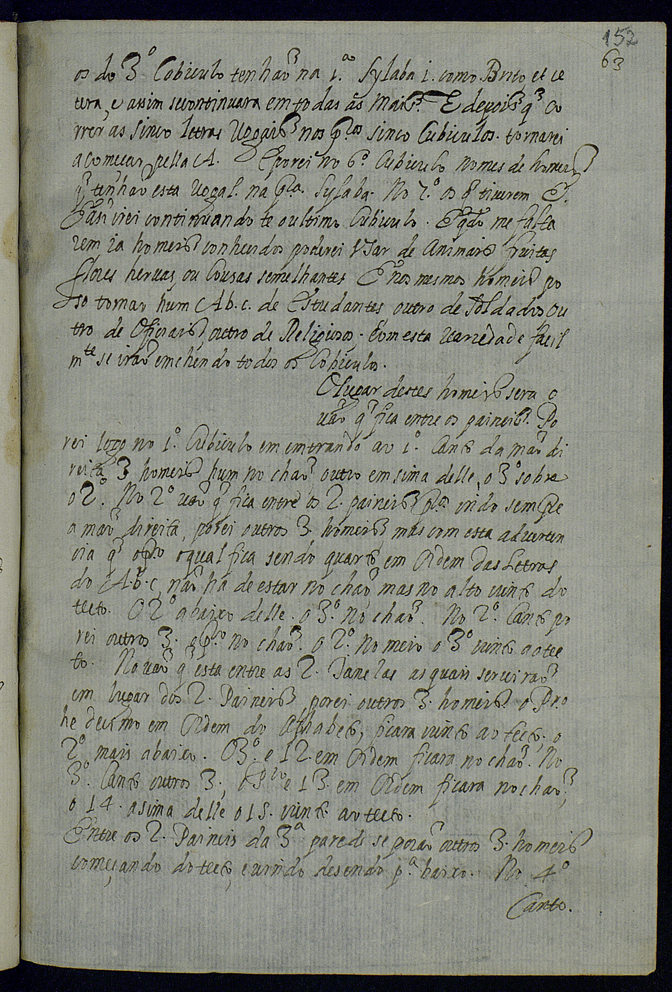 152
63
os do 3º Cobiculo tenhaõ na 1.ª Sylaba i. como Brito et ce
tera, e assim se continuara em todas as mais. E depois q̃ co
rrer as sinco letras Vogais nos pr.os sinco Cubiculos. tornarei
a comecar pella A. E porei no 6º Cubiculo nomes de homeis
q̃ tenhaõ esta vogal na pr.a Sylaba. No 7.º os q̃ tiverem E.
E assi irei continuando te o ultimo Cubiculo. E qdo me falta
rem ia homeis conhecidos poderei Vsar de Animais fruitas
flores hervas, ou cousas semelhantes. E nos mesmos homeis po
so tomar hum A.b.c. de Estudantes outro de Soldados ou
tro de Officiais, outro de Religiosos. Com esta variedade facil
mte se iraõ emchendo todos os Cobiculos.
O lugar destes homeis sera o
vaõ q̃ fica entre os paineis. Po
rei logo no 1.º Cubiculo em entrando ao 1.º Canto da maõ di
reita 3 homeis hum no chaõ outro em sima delle, o 3º sobre
o 2º. No 2º vaõ q̃ fica entre os 2. paineis indo sempre
a maõ direita, porei outros 3. homeis mas com esta adverten
cia q̃ o pro o qual fica sendo quarto em Ordem das Letras
do A.b.c, naõ há de estar no chaõ mas no alto iunto do
tecto. O 2º abaixo delle. o 3º no chaõ. No 2º Canto po
rei outros 3. o pro no chaõ. o 2º no meio o 3º iunto ao tec
to. No vaõ q̃ está entre as 2. Janelas as quais serviraõ
em lugar dos 2. Paineis, porei outros 3. homeis o Pro
he decimo em Ordem do Alphabeto, ficara iunto ao tecto, o
2º mais abaixo. O 3º. e 12. em Ordem ficara no chaõ. No
3º. Canto outros 3, o Pro e 13. em Ordem ficara no chaõ,
o 14. asima delle o 15. iunto ao tecto.
Entre os 2. Paineis da 3ª parede se poraõ outros 3. homeis
começando do tecto, e vindo desendo pª baixo. No 4º
Canto.